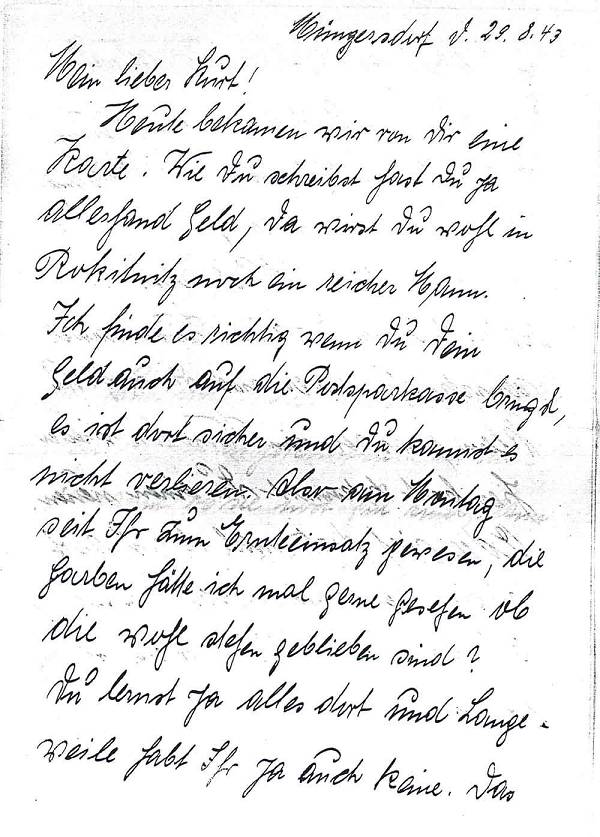 Müngersdorf d. 29.8.43
Mein lieber Kurt!
Heute bekamen wir von dir eine
Karte. Wie Du schreibst hast Du ja
allerhand Geld, da wirst du wohl in
Rokitnitz noch ein reicher Mann.
Ich finde es richtig wenn du dein
Geld auch auf die Postsparkasse bringst,
es ist dort sicher und du kannst es
nicht verlieren. Also am Montag
seit Ihr zum Ernteeinsatz gewesen, die
Garben hätte ich mal gerne gesehen ob
die wohl stehen geblieben sind?
Du lernst ja alles dort und Lange-
weile habt Ihr ja auch keine. Das